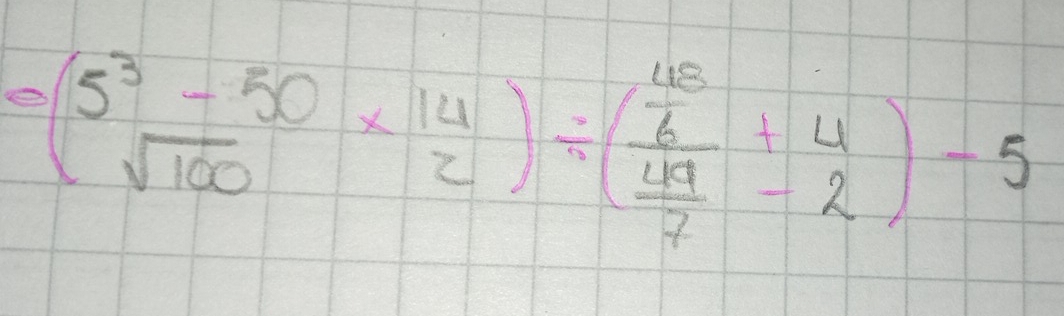 =(5³ - 50 / √100 × 14 / 2) ÷ (48/6 + 4 / 49/7 - 2) - 5